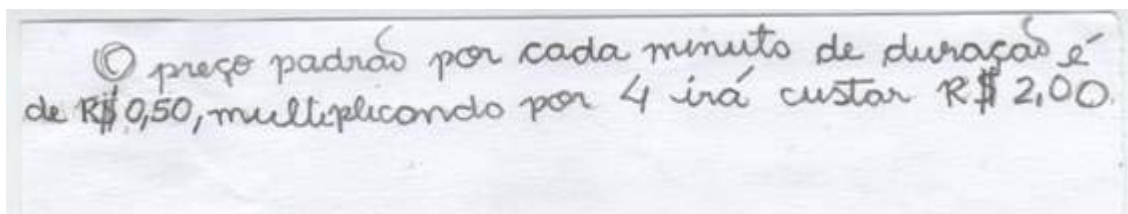 O preço padrão por cada minuto de duração é
de R$ 0,50, multiplicando por 4 irá custar R$ 2,00.